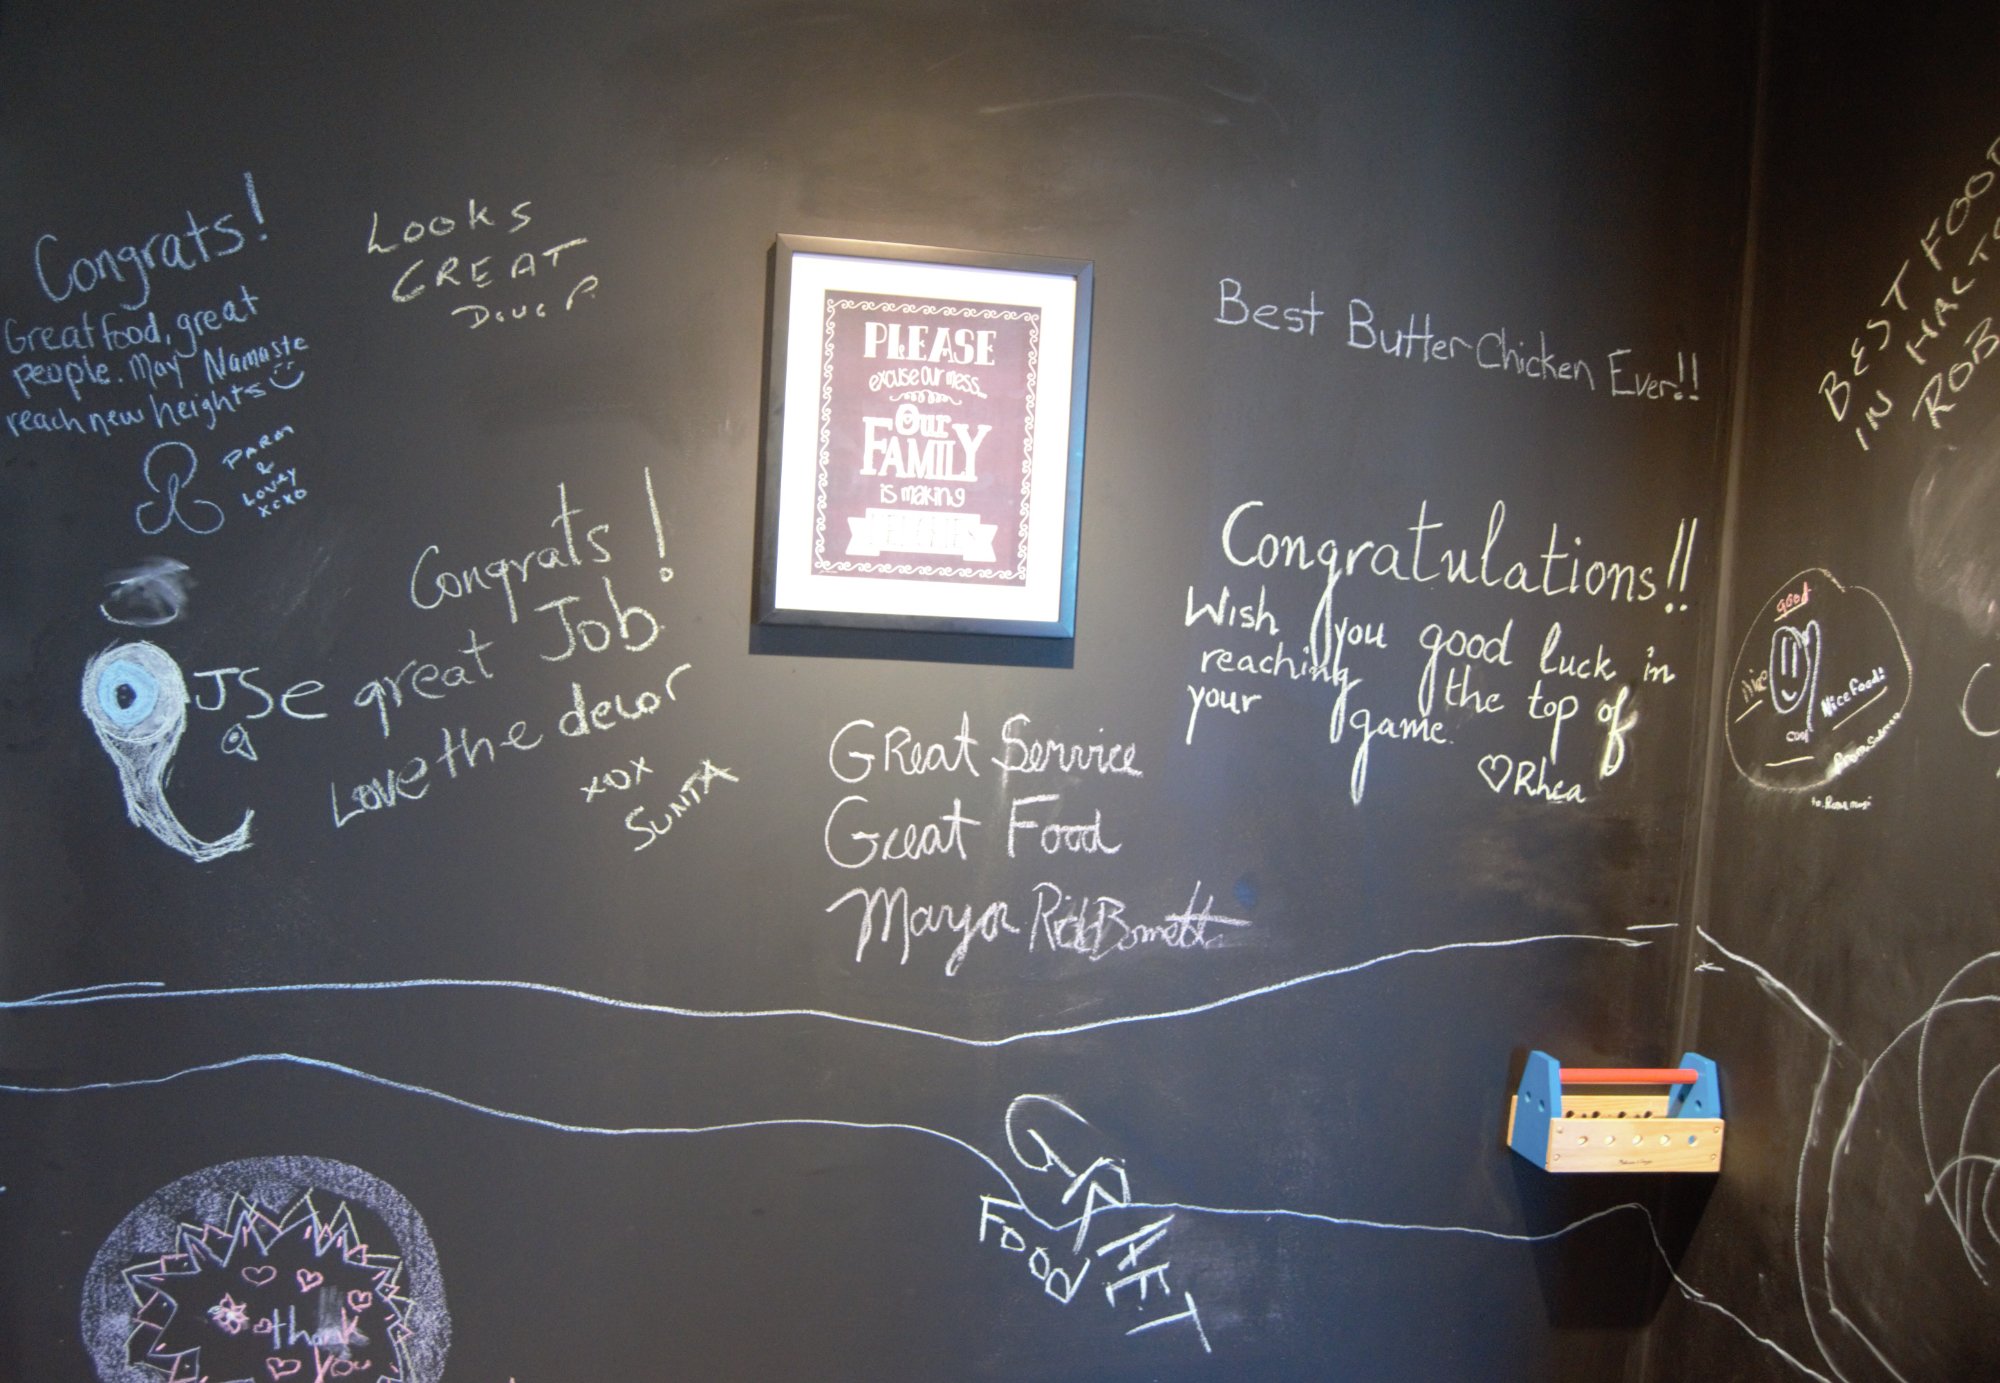 Congrats!
Great food, great
people. May Namaste
reach new heights
PARM
&
LOVEY
XOXO
LOOKS
GREAT
DOUG P
Congrats!
JSE great Job
Love the decor
XOX
SUNITA
PLEASE
excuse our mess...
Our
FAMILY
is making
Best Butter Chicken Ever!!
Congratulations!!
Wish you good luck in
reaching the top of
your game.
Rhea
GReat Service
Great Food
Mayor Rick Bonnette
BEST FOOD
IN HALTO
ROB
good
Nice
Nice food:
cool
FOOD
thank
you